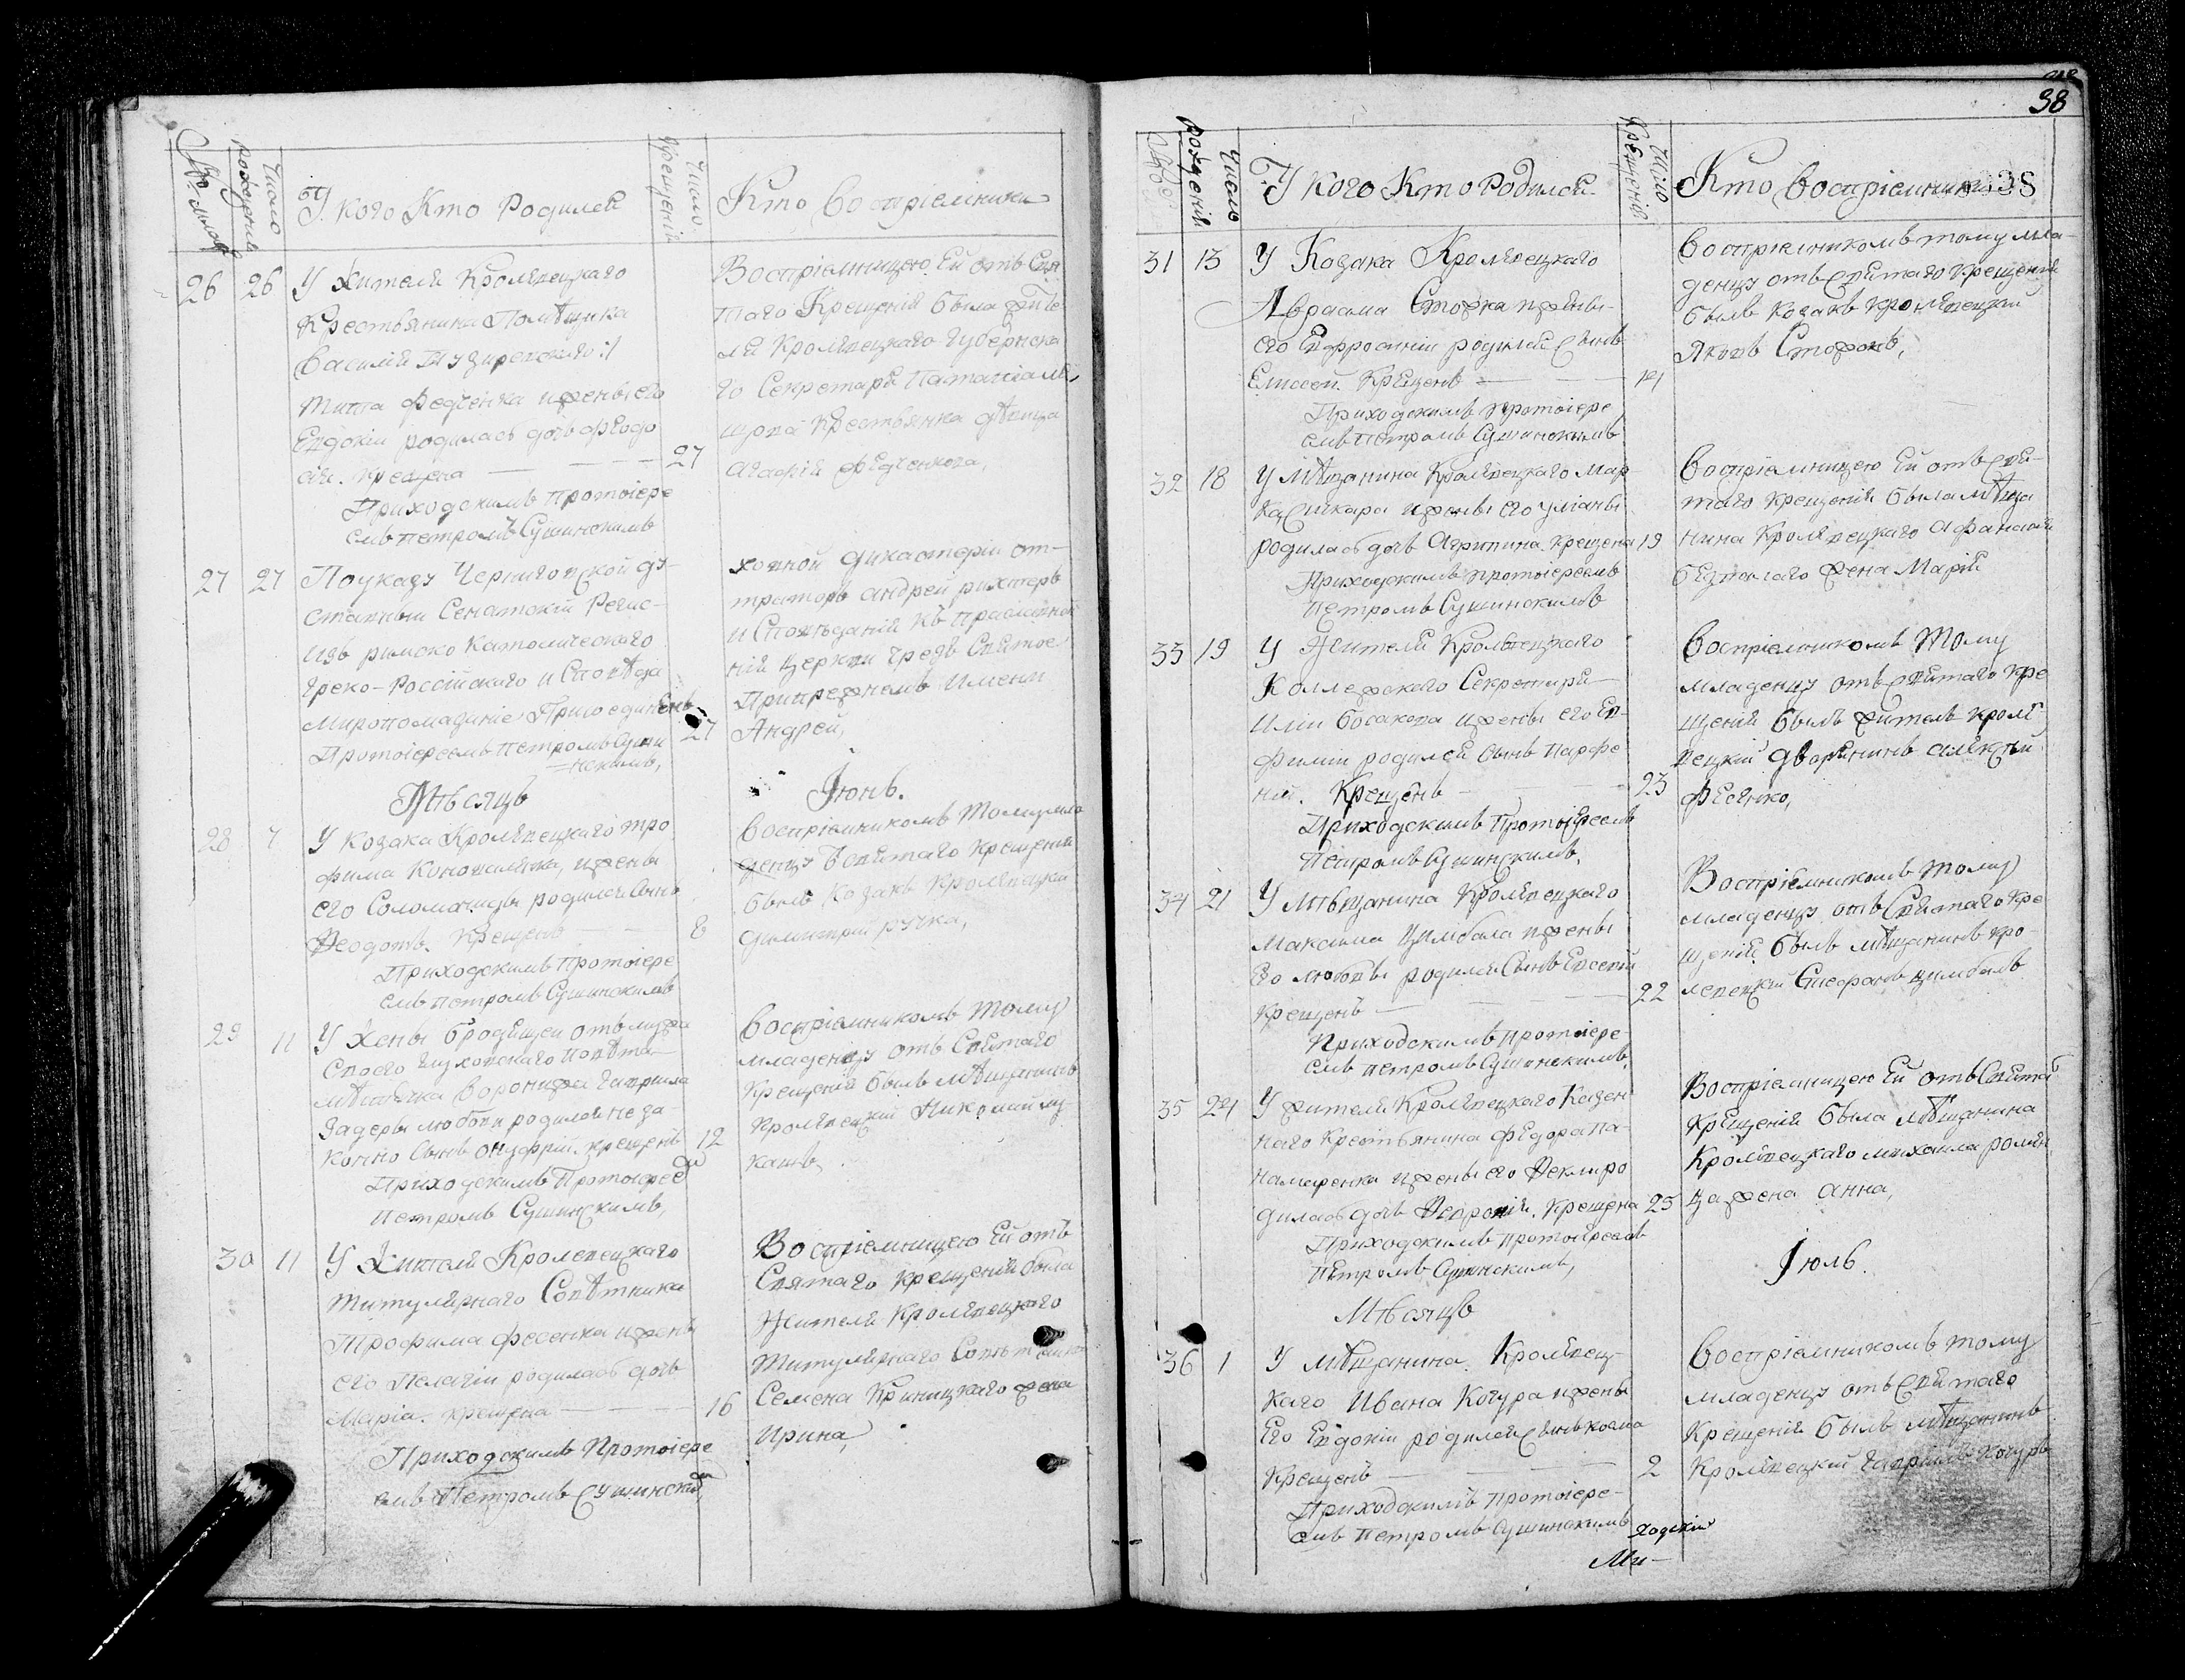 Число рожденія
У кого Кто Родился
Число крещенія
Кто Воспріемники
26 26 У жителя Кролѣвецкаго
Крестьянина Помѣщика
Василія
Тита Федченка и жены его
Евдокіи родилась дочь Феодо
сія. Крещена — — — 27
Приходскимъ Протоіере
емъ Петромъ Сушинскимъ
Воспріемницею Ей отъ Свя
таго Крещенія была жите
ля Кролѣвецкаго Губернска
го Секретаря
Крестьянка дѣвица
Агафія Федченкова,
27 27 По указу Черниговской ду-
ховной дикастеріи от-
ставный Сенатскій Регис-
траторъ Андрей Рихтеръ
изъ римско Католическаго
и Сповѣданія къ
Греко-Россійскаго и Сповѣда
нія церкви чрезъ Святое
Миропомазаніе Присоединенъ 27
Припрежнемъ Имени
Протоіереемъ Петромъ Суши
=нскимъ,
Андрей,
Мѣсяцъ Іюнь.
28 7 У Козака Кролѣвецкаго Тро
фима и жены
его Соломониды родился Сынъ
Феодотъ. Крещенъ — — 8
Приходскимъ Протоіере
емъ Петромъ Сушинскимъ
Воспріемникомъ Тому мла
денцу Святаго Крещенія
былъ Козакъ Кролѣвецкій
Димитрій Ручка,
29 11 У Жены бродящей отъ мужа
Своего Глуховскаго Повѣта
мѣстечка Воронежа Гаврила
Любови родился неза-
конно Сынъ Онуфрій. крещенъ 12
Приходскимъ Протоіерее
Петромъ Сушинскимъ,
Воспріемникомъ Тому
младенцу отъ Святаго
Крещенія былъ мѣщанинъ
Кролѣвецкій Николай
30 11 У Жителя Кролевецкаго
Титулярнаго Совѣтника
Трофима Фесенка и жены
его Пелагіи родилась дочь
Марія. крещена — — — 16
Приходскимъ Протоіере
емъ Петромъ Сушинский
Воспріемницею Ей отъ
Святаго крещенія была
Жителя Кролѣвецкаго
Титулярнаго Совѣтника
Семена Криницкаго жена
Ирина,
38
Число рожденій
У кого Кто Родился
Число Крещеній
Кто Воспріемники 38
31 13 У Козака Кролѣвецкаго
Авраама Стожка и жены
его Евфросиніи родился Сынъ
Елисей. Крещенъ — — 14
Приходскимъ Протоіере
емъ Петромъ Сушинскимъ
Воспріемникомъ тому мла-
денцу отъ Святаго Крещенія
былъ Козакъ Кролѣвецкій
Яковъ Стожокъ,
32 18 У Мѣщанина Кролѣвецкаго Мар
ка и жены его Уліаны
родилась дочь Агрипина. Крещена 19
Приходскимъ Протоіереемъ
Петромъ Сушинскимъ
Воспріемницею Ей отъ Свя-
таго Крещенія была мѣща
нина Кролѣвецкаго Афанасія
жена Марія
33 19 У Жителя Кролѣвецкаго
Коллежскаго Секретаря
Иліи Босакова и жены его Ев-
фиміи родился Сынъ Парфе
ній. Крещенъ — — 23
Приходскимъ Протоіереемъ
Петромъ Сушинскимъ.
Воспріемникомъ Тому
младенцу отъ Святаго кре
щенія былъ житель кролѣ
вецкій дворянинъ Алексѣй
Фесенко,
34 21 У Мѣщанина Кролѣвецкаго
Максима Цимбала и жены
Его Любови родился Сынъ Евсевій
Крещенъ — — — 22
Приходскимъ Протоіере-
емъ Петромъ Сушинскимъ.
Воспріемникомъ Тому
младенцу отъ Святаго Кре
щенія былъ мѣщанинъ кро-
левецкій Стефанъ Цимбалъ
35 24 У жителя Кролѣвецкаго Казен
наго Крестьянина Федора По-
намаренка и жены его Феклы ро
дилась дочь Февронія. Крещена 25
Приходскимъ Протоіереемъ
Петромъ Сушинскимъ,
Воспріемницею Ей отъ Святаго
Крещенія была мѣщанина
Кролѣвецкаго Михаила
жена Анна,
Мѣсяцъ Іюль.
36 1 У мѣщанина Кролѣвец-
каго Ивана Кочура и жены
Его Евдокіи родился Сынъ Косма
Крещенъ — — — 2
Приходскимъ Протоіере-
емъ Петромъ Сушинскимъ
Воспріемникомъ тому
младенцу отъ Святаго
Крещенія былъ мѣщанинъ
Кролѣвецкій Гавріилъ Кочуръ